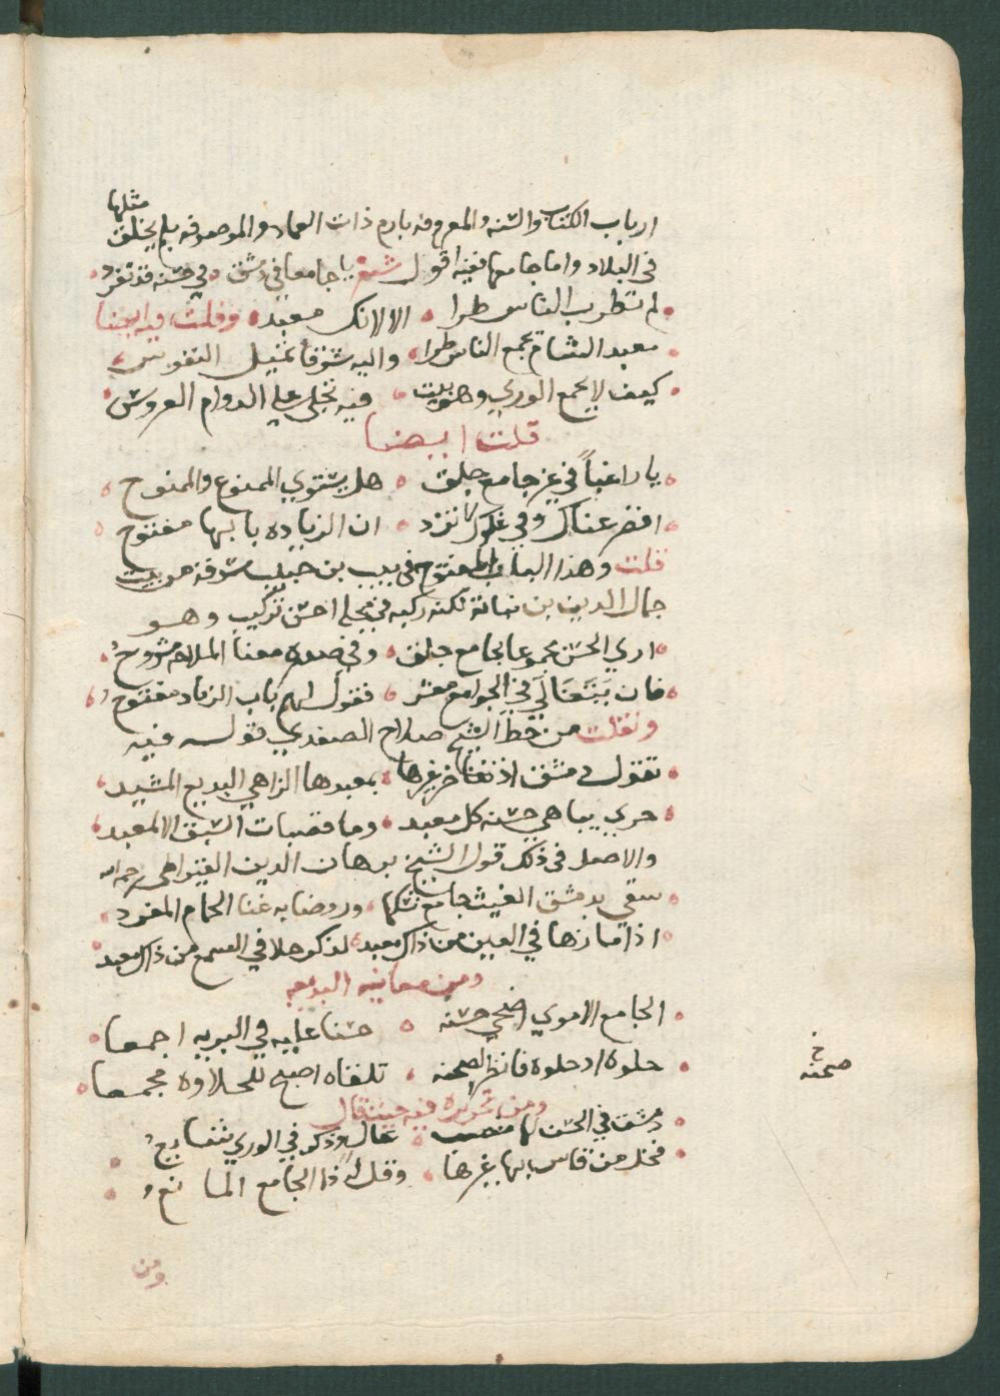 ارباب الكتاب والسنه والمعروفه بارم ذات العماد والموصوفه بلم يخلق مثلها
في البلاد واما جامعها ففيه اقول شعر يا جامعا في دمشق • في حسنه قد تفرد •
• لم تطرب الناس طرا • الا لانك معبد • وقلت فيه ايضا
• معبد الشام يجمع الناس طرا • واليه شوقا تميل النفوس
• كيف لا يجمع الوري وهو بيت • فيه تجلي علي الدوام العروس •
قلت ايضا
• يا راغبا في غير جامع جلق • هل يستوي الممنوع والممنوح •
• اقصر عناك وفي غلوك لا تزد • ان الزياده بابها مفتوح •
قلت وهذا الباب المفتوح في بيت شرفه هو بيت
جمال الدين بن نباتة لكنه ركبه في محل احسن تركيب وهو
• اري الحسن مجموعا بجامع جلق • وفي صدره معنا الملاحه مشروح •
• فان يتغالي في الجوامع معشر • فقول لهم باب الزياده مفتوح •
ونقلت من خط الشيخ صلاح الصفدي قوله فيه
• تقول دمشق اذ تفاخر غيرها • بمعبدها الزاهي البديع المشيد •
• جري يباهي حسنه كل معبد • وما قصبات السبق الا لمعبد •
والاصل في ذلك قول الشيخ برهان الدين القيراطي رحمه الله
• سقي بدمشق الغيث جامع نسكها • وروضا به غنا الحمام المغرد •
• اذا ما زها في العين من ذاك معبد • لذكر حلا في السمع من ذاك معبد
ومن معانيه البديعه
• الجامع الاموي اضحي حسنه • حسنا عليه في البريه اجمعا •
• حلوه اد حلوه فانظر لصحنه • تلقاه اصبح للحلاوة مجمعا •
خ
صحنه
ومن فيه حيث قال
• دمشق في الحسن لها منصب • عال وذكر في الوري شايع •
• فخل من قاس بها غيرها • وقل له ذا الجامع المانع •
ومن